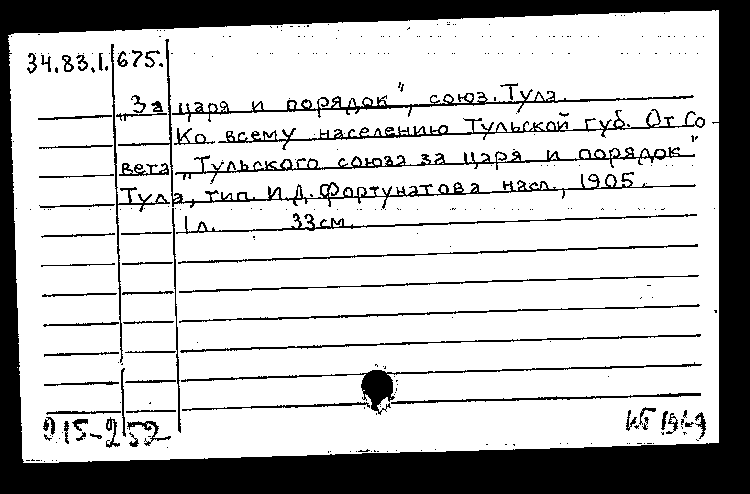 34.83.1. 675.
„За царя и порядок“, союз. Тула.
Ко всему населению Тульской губ. От Со-
вета „Тульского союза за царя и порядок“
Тула, тип. И.Д. Фортунатова насл., 1905.
1 л. 33 см.
215-252